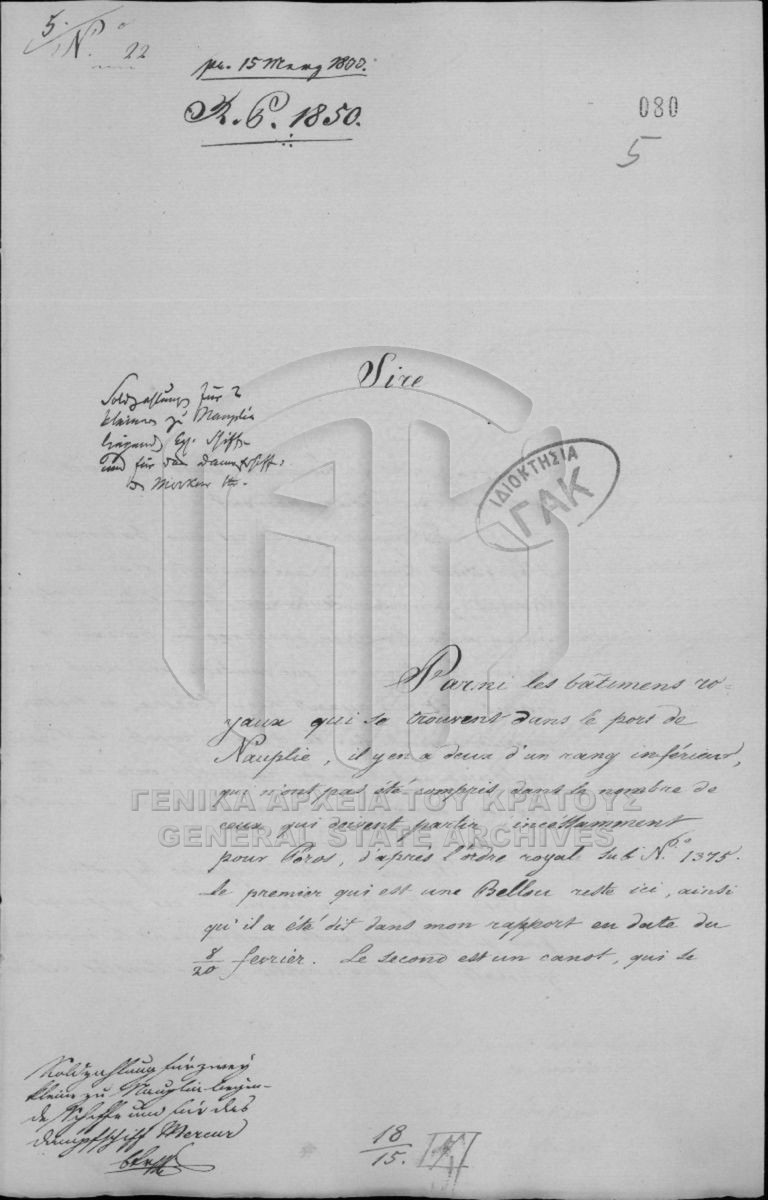 5.
N.º 22
pr. 15 Merz 1833.
R. P. 1850.
080
5
Sire
Soldzahlung für 2
kleinere zu Nauplia
liegende Schiffe
und für das Dampfschiff
ΙΔΙΟΚΤΗΣΙΑ
ΓΑΚ
Parmi les bâtimens ro-
yaux qui se trouvent dans le port de
Nauplie, il y en a deux d'un rang inférieur,
qui n'ont pas été compris dans le nombre de
ΓΕΝΙΚΑ ΑΡΧΕΙΑ ΤΟΥ ΚΡΑΤΟΥΣ
ceux qui doivent partir incessamment
GENERAL STATE ARCHIVES
pour Poros, d'après l'ordre royal sub N.º 1375.
le premier qui est une Bellou reste ici, ainsi
qu'il a été dit dans mon rapport en date du
8/20 fevrier. Le second est un canot, qui se
Soldzahlung für zwey
kleine zu Nauplia liegen-
de Schiffe und für das
Dampfschiff Mercur
18/15.